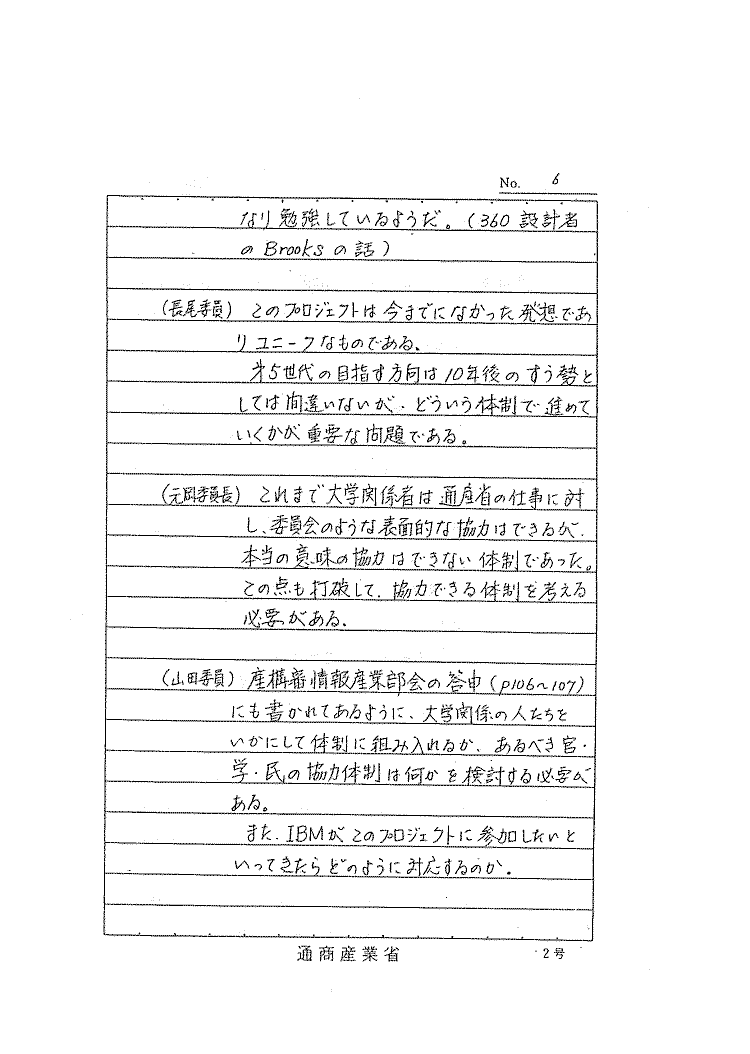 No. 6
なり勉強しているようだ。(360設計者
のBrooksの話)
(長尾委員) このプロジェクトは今までになかった発想であ
りユニークなものである、
才5世代の目指す方向は10年後のすう勢と
しては間違いないが、どういう体制で進めて
いくかが重要な問題である。
(元岡委員長) これまで大学関係者は通産省の仕事に対
し、委員会のような表面的な協力はできるが、
本当の意味の協力はできない体制であった。
この点も打破して、協力できる体制を考える
必要がある、
(山田委員) 産構審情報産業部会の答申(p106〜107)
にも書かれてあるように、大学関係の人たちを
いかにして体制に組み入れるか、あるべき官・
学・民の協力体制は何かを検討する必要が
ある。
また、IBMがこのプロジェクトに参加したいと
いってきたらどのように対応するのか。
通商産業省
2号